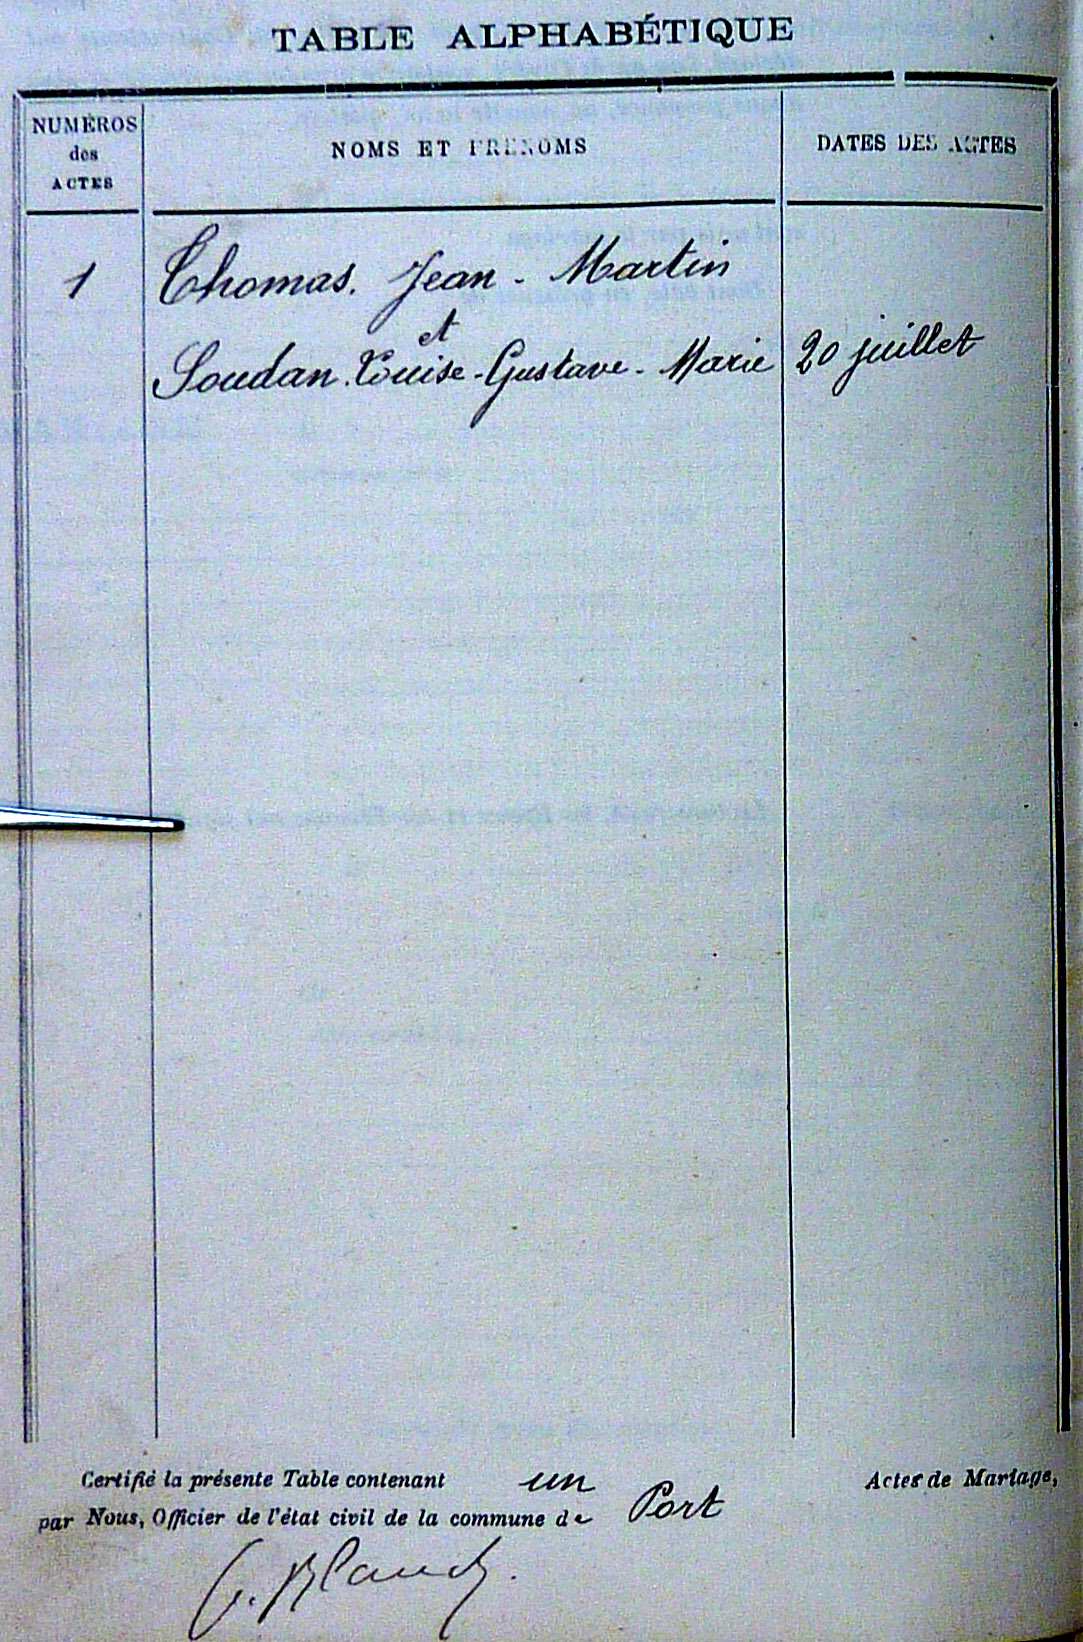 TABLE ALPHABÉTIQUE
NUMÉROS
des
ACTES
NOMS ET PRENOMS
DATES DES ACTES
1
Thomas. Jean - Martin
et
Soudan. Louise - Gustave - Marie
20 juillet
Certifié la présente Table contenant un Actes de Mariage,
par Nous, Officier de l'état civil de la commune de Port